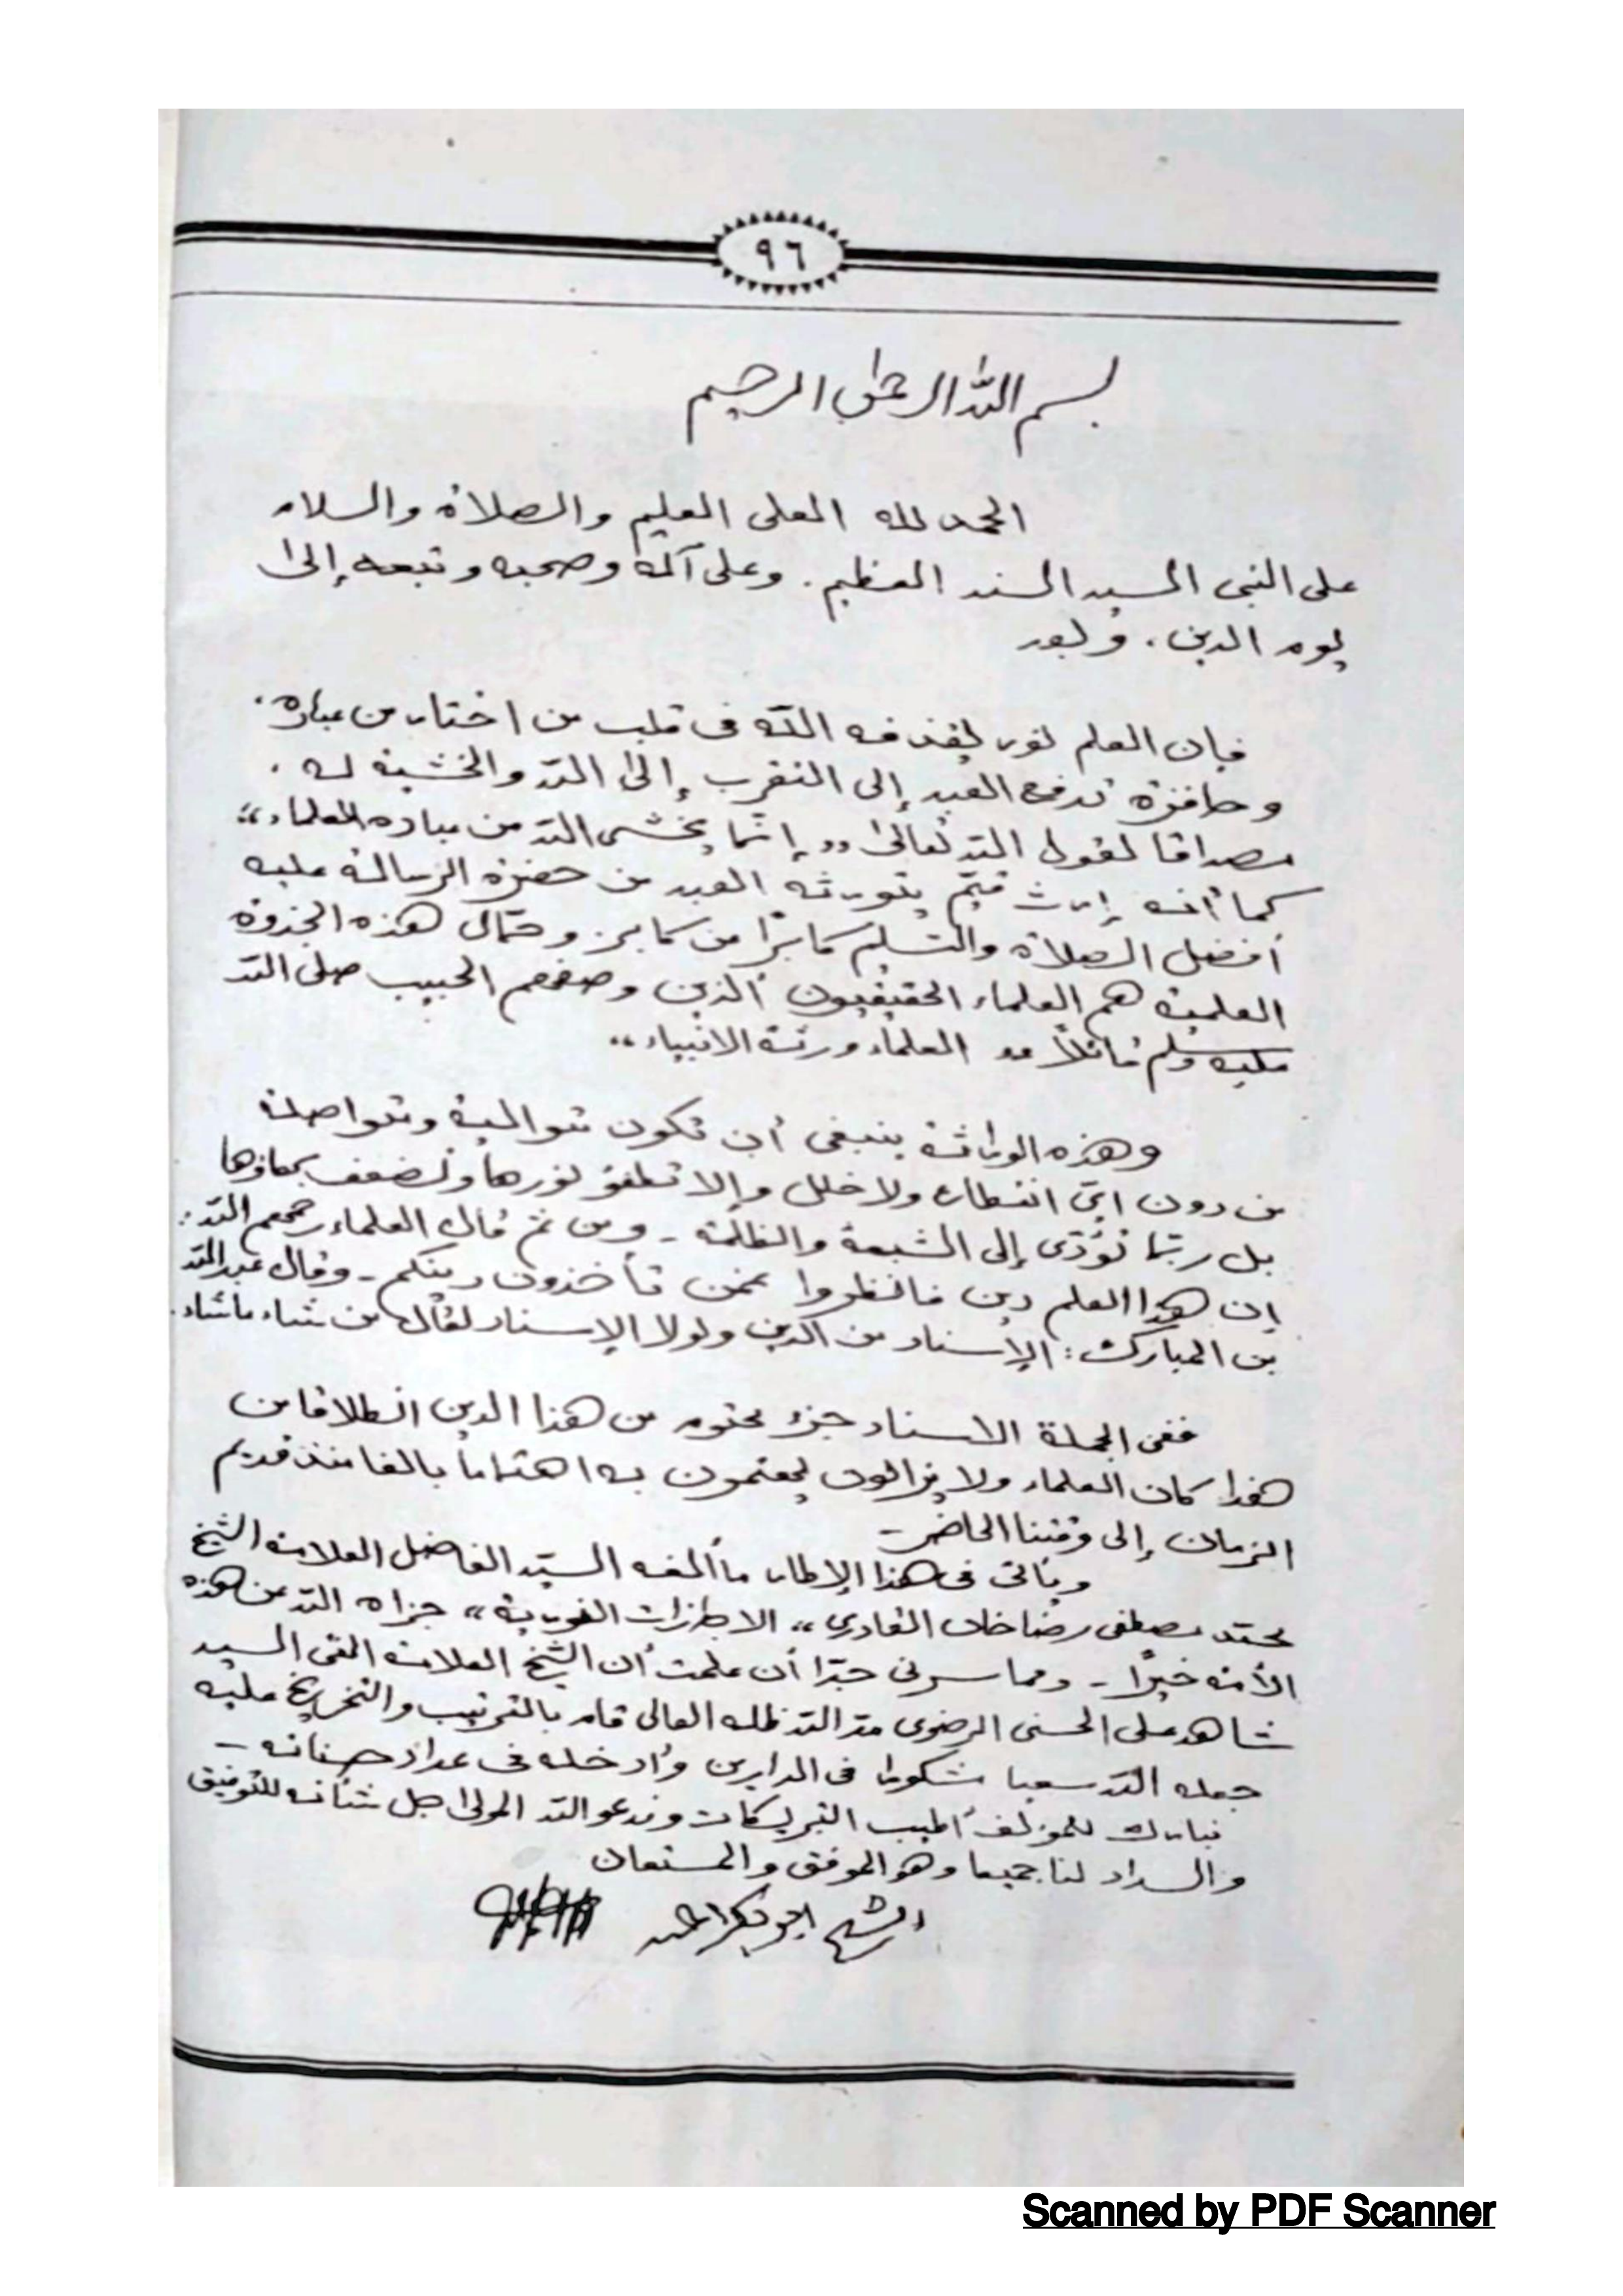 ٩٦
بسم الله الرحمن الرحيم
الحمد لله العلى العليم والصلاة والسلام
على النبى السيد السند العظيم . وعلى آله وصحبه وتبعه إلى
يوم الدين . وبعد
فإن العلم نور يقذفه الله فى قلب من اختار من عباده .
وحافزة تدفع العبد إلى التقرب إلى الله والخشية له .
مصداقا لقول الله تعالى ,, إنّما يخشى الله من عباده العلماء ,,
كما أنه إرث قيّم يتورثه العبد من حضرة الرسالة عليه
أفضل الصلاة والتسليم كابرًا من كابر . وحمّال هذه الجذوة
العلمية هم العلماء الحقيقيون الذين وصفهم الحبيب صلى الله
عليه وسلم قائلاً ,, العلماء ورثة الانبياء ,,
وهذه الوراثة ينبغى أن تكون متوالية ومتواصلة
من دون اىّ انقطاع ولا خلل وإلا تطفئ نورها وتضعف
بل ربّما تؤدّى إلى الشبهة والظلمة - ومن ثم قال العلماء رحمهم الله :
إن هذا العلم دين فانظروا عمّن تأخذون دينكم - وقال عبد الله
بن المبارك : الإسناد من الدين ولولا الإسناد لقال من شاء ما شاء .
ففى الجملة الاسناد جزء محتوم من هذا الدين انطلاقا من
هذا كان العلماء ولا يزالون يهتمون به اهتماما بالغا منذ قديم
الزمان إلى وقتنا الحاضر -
ويأتى فى هذا الإطار ما ألفه السيّد الفاضل العلامة الشيخ
محمّد مصطفى رضا خان القادري ,, الاجازات ,, جزاه الله عن هذه
الأمة خيرًا - ومما سرنى جدّا أن علمت أن الشيخ العلامة التقى السيد
شاهد على الحسنى الرضوى مدّ الله ظله العالى قام بالترتيب والتخريج عليه
جعله الله سعيا مشكورا فى الدارين وأدخله فى عداد حسناته -
نبارك للمؤلف أطيب التبريكات وندعو الله المولى جل شأنه للتوفيق
والسداد لنا جميعا وهو الموفق والمستعان
الشيخ ابوبكر احمد
Scanned by PDF Scanner